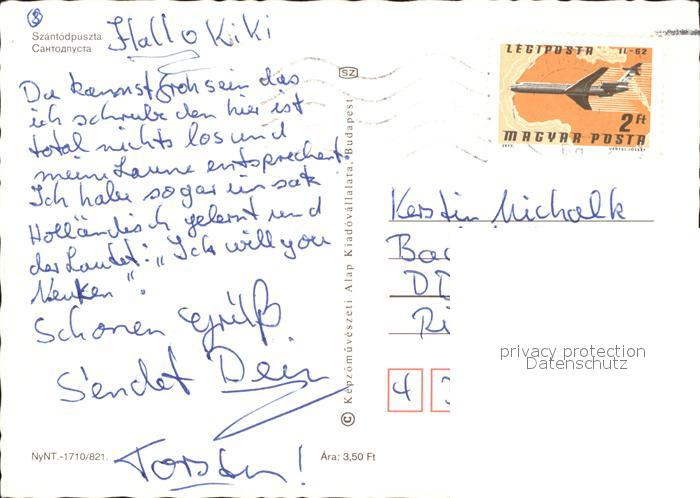 Szántódpuszta
Сантодпуста
Hallo Kiki
Du kannst froh sein das
ich schreibe den hier ist
total nichts los und
meine Laune entsprechent.
Ich habe sogar ein satz
Holländisch gelernt und
der Lautet: „Ick will you
Neuken".
Schönen Grüß
Sendet Dein
Torsten!
NyNT.-1710/821.
Ára: 3,50 Ft
SZ
© Képzőművészeti Alap Kiadóvállalata, Budapest
LÉGIPOSTA IL-62
2 Ft
MAGYAR POSTA
Kerstin Michalk
Bad
DD
Ri
4
privacy protection
Datenschutz